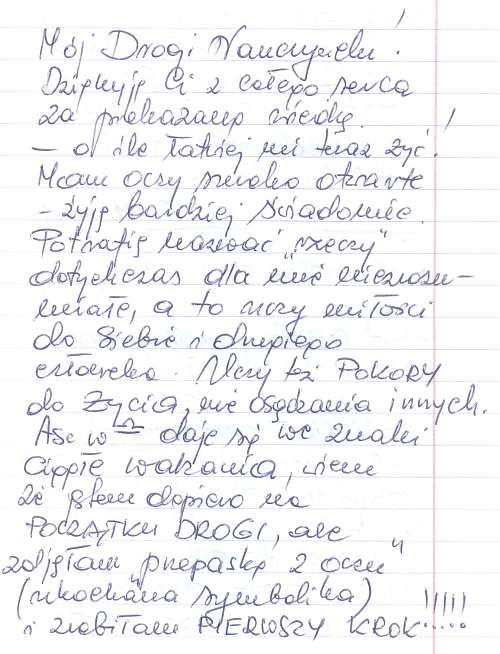 Mój Drogi Nauczycielu!
Dziękuję Ci z całego serca
za przekazaną wiedzę.
– o ile łatwiej mi teraz żyć!
Mam oczy szeroko otwarte
– żyję bardziej świadomie.
Potrafię nazwać „rzeczy"
dotychczas dla mnie niezrozu-
miałe, a to uczy miłości
do siebie i drugiego
człowieka. Uczy też POKORY
do życia, nie osądzania innych.
Asc w daje się we znaki
Ciągle wahania, wiem
że jestem dopiero na
POCZĄTKU DROGI, ale
zdjęłam „przepaskę z oczu"
(ukochana symbolika)
i zrobiłam PIERWSZY KROK!!!!!